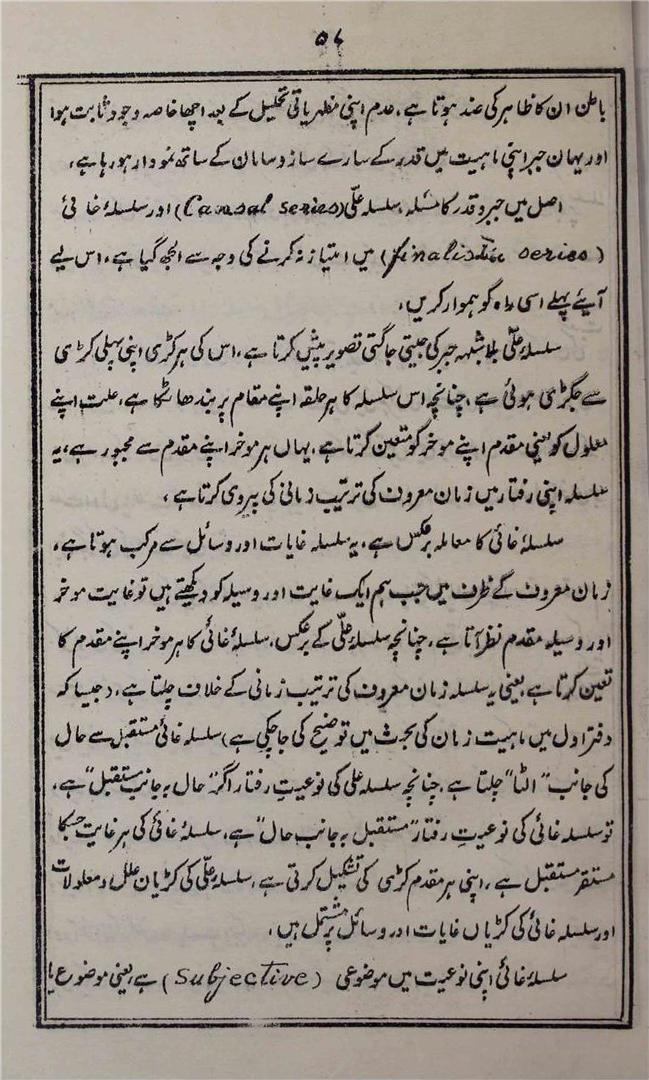 ۵۷
باطن ان کا ظاہر کی عند ہوتا ہے، عدم اپنی مظہریاتی تحلیل کے بعد اچھا خاصہ وجود ثابت ہوا
اور یہاں جبر اپنی ماہیت میں قدر کے سارے ساز و سامان کے ساتھ نمودار ہو رہا ہے،
اصل میں جبر و قدر کا مسئلہ، سلسلہ علّی (Causal series) اور سلسلۂ غائی
(finalistic series) میں امتیاز نہ کرنے کی وجہ سے الجھ گیا ہے، اس لیے
آیئے پہلے اسی راہ کو ہموار کریں،
سلسلۂ علّی بلاشبہہ جبر کی جیتی جاگتی تصویر پیش کرتا ہے، اس کی ہر کڑی اپنی پہلی کڑی
سے جکڑی ہوئی ہے، چنانچہ اس سلسلہ کا ہر حلقہ اپنے مقام پر بندھا ٹکا ہے، علت اپنے
معلول کو یعنی مقدم اپنے موخر کو متعین کرتا ہے، یہاں ہر موخر اپنے مقدم سے مجبور ہے، یہ
سلسلہ اپنی رفتار میں زمان معروف کی ترتیب زمانی کی پیروی کرتا ہے،
سلسلۂ غائی کا معاملہ برعکس ہے، یہ سلسلہ غایات اور وسائل سے مرکب ہوتا ہے،
زمان معروف کے ظرف میں جب ہم ایک غایت اور وسیلہ کو دیکھتے ہیں تو غایت موخر
اور وسیلہ مقدم نظر آتا ہے، چنانچہ سلسلۂ علّی کے برعکس، سلسلۂ غائی کا ہر موخر اپنے مقدم کا
تعین کرتا ہے، یعنی یہ سلسلہ زمان معروف کی ترتیب زمانی کے خلاف چلتا ہے، (جیسا کہ
دفتر اول میں ماہیت زمان کی بحث میں توضیح کی جاچکی ہے) سلسلۂ غائی مستقبل سے حال
کی جانب "الٹا" چلتا ہے، چنانچہ سلسلہ علی کی نوعیتِ رفتار اگر "حال بہ جانب مستقبل" ہے،
تو سلسلہ غائی کی نوعیتِ رفتار "مستقبل بہ جانب حال" ہے، سلسلۂ غائی کی ہر غایت جسکا
مستقر مستقبل ہے، اپنی ہر مقدم کڑی کی تشکیل کرتی ہے، سلسلۂ علّی کی کڑیاں علل و معلولات
اور سلسلہ غائی کی کڑیاں غایات اور وسائل پر مشتمل ہیں،
سلسلۂ غائی اپنی نوعیت میں موضوعی (Subjective) ہے، یعنی موضوع یا